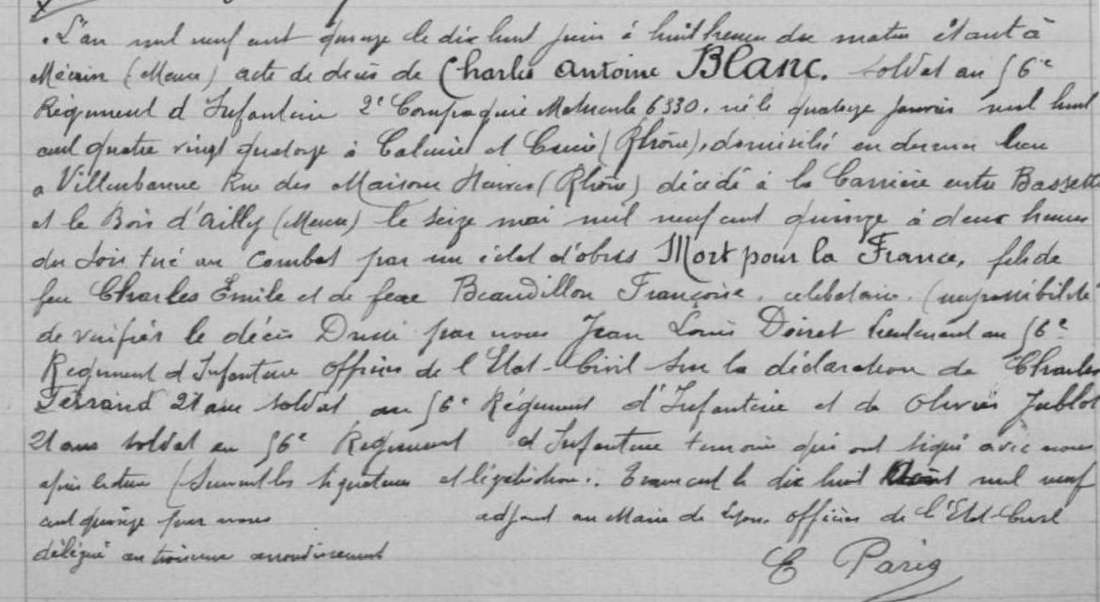 L'an mil neuf cent quinze le dix huit juin à huit heures du matin étant à
Mécrin (Meuse) acte de décès de Charles Antoine Blanc. soldat au 56e
Régiment d'Infanterie 2e Compagnie Matricule 6330. né le quatorze janvier mil huit
cent quatre vingt quatorze à Caluire et Cuire (Rhône), domicilié en dernier lieu
à Villeurbanne Rue des Maisons Neuves (Rhône) décédé à la Carrière entre Bassette
et le Bois d'Ailly (Meuse) le seize mai mil neuf cent quinze à deux heures
du soir tué au combat par un éclat d'obus Mort pour la France, fils de
feu Charles Émile et de feue Beaudillon Françoise. célibataire. (impossibilité
de vérifier le décès Dressé par nous Jean Louis Doiret lieutenant au 56e
Régiment d'Infanterie officier de l'Etat-Civil sur la déclaration de Charles
Ferrand 21 ans soldat au 56e Régiment d'Infanterie et de Olivier Jublot
21 ans soldat au 56e Régiment d'Infanterie témoins qui ont signé avec nous
après lecture (Suivent les signatures et législation. Transcrit le dix huit août mil neuf
cent quinze par nous adjoint au Maire de Lyon. officier de l'Etat-Civil
délégué au troisième arrondissement
E Paris